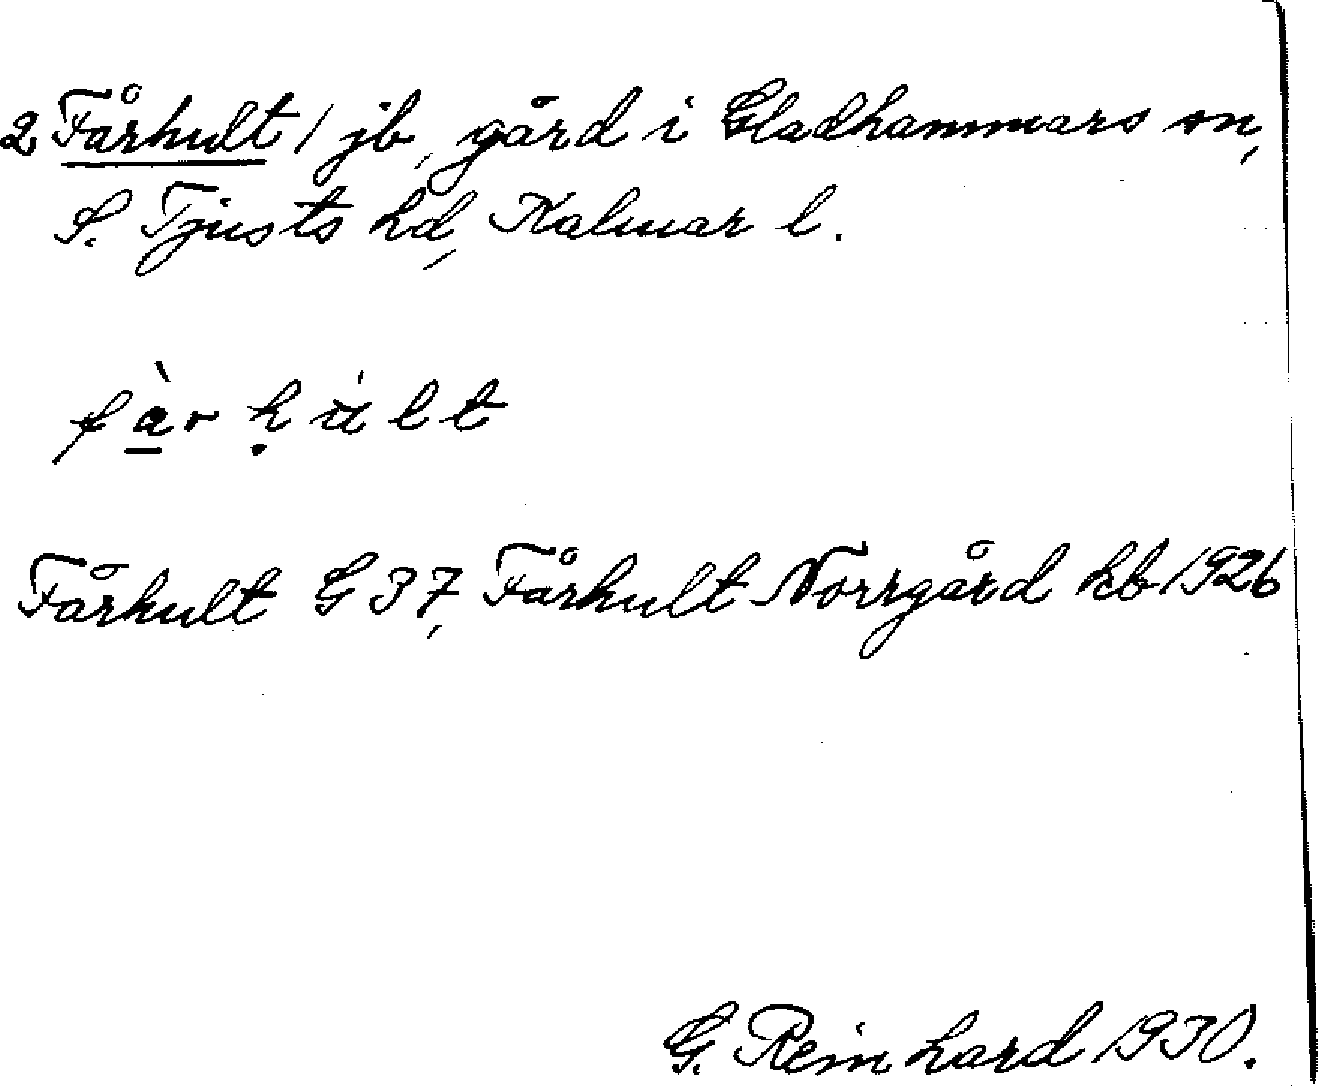 2 Fårhult / jb, gård i Gladhammars sn,
S. Tjusts hd, Kalmar l.
fàr ḥu̇lt
Fårhult G 37, Fårhult Norrgård kb 1926
G. Reinhard 1930.